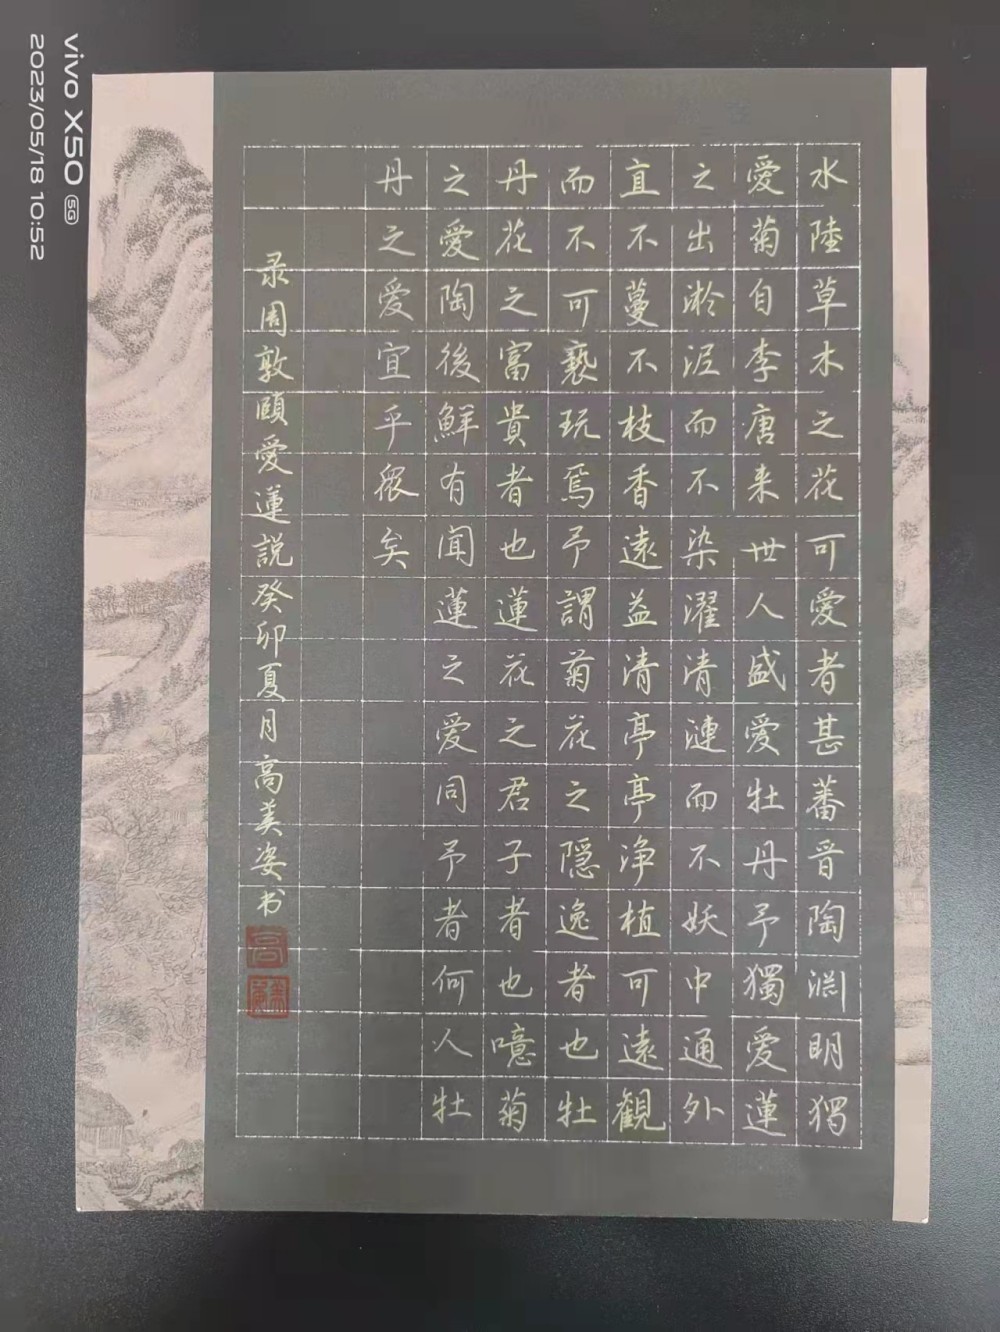 水陸草木之花可愛者甚蕃晋陶渊明獨
愛菊自李唐来世人盛愛牡丹予獨愛蓮
之出淤泥而不染濯清漣而不妖中通外
直不蔓不枝香遠益清亭亭净植可遠観
而不可褻玩焉予謂菊花之隠逸者也牡
丹花之富貴者也蓮花之君子者也噫菊
之愛陶後鮮有聞蓮之愛同予者何人牡
丹之愛宜乎衆矣
录周敦頤愛蓮説癸卯夏月高美姿书
vivo X50 5G
2023/05/18 10:52